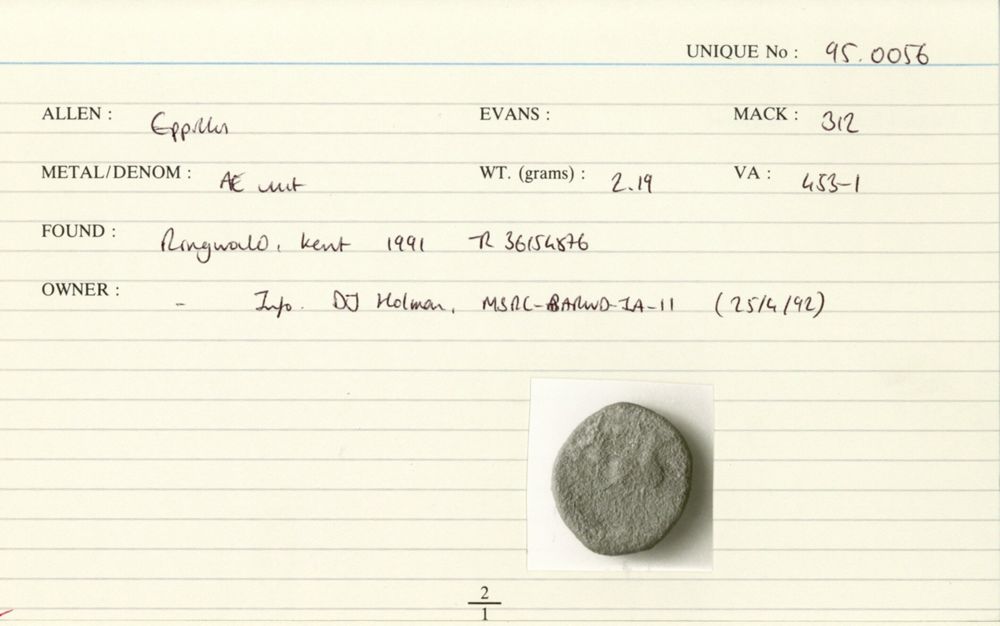 UNIQUE No : 95.0056
ALLEN : Eppillus EVANS : MACK : 312
METAL/DENOM : AE unit WT. (grams) : 2.19 VA : 453-1
FOUND : Ringwald, Kent 1991 TR 36154876
OWNER : - Info. DJ Holman, MSRC-BARWD-IA-11 (25/4/92)
2
1